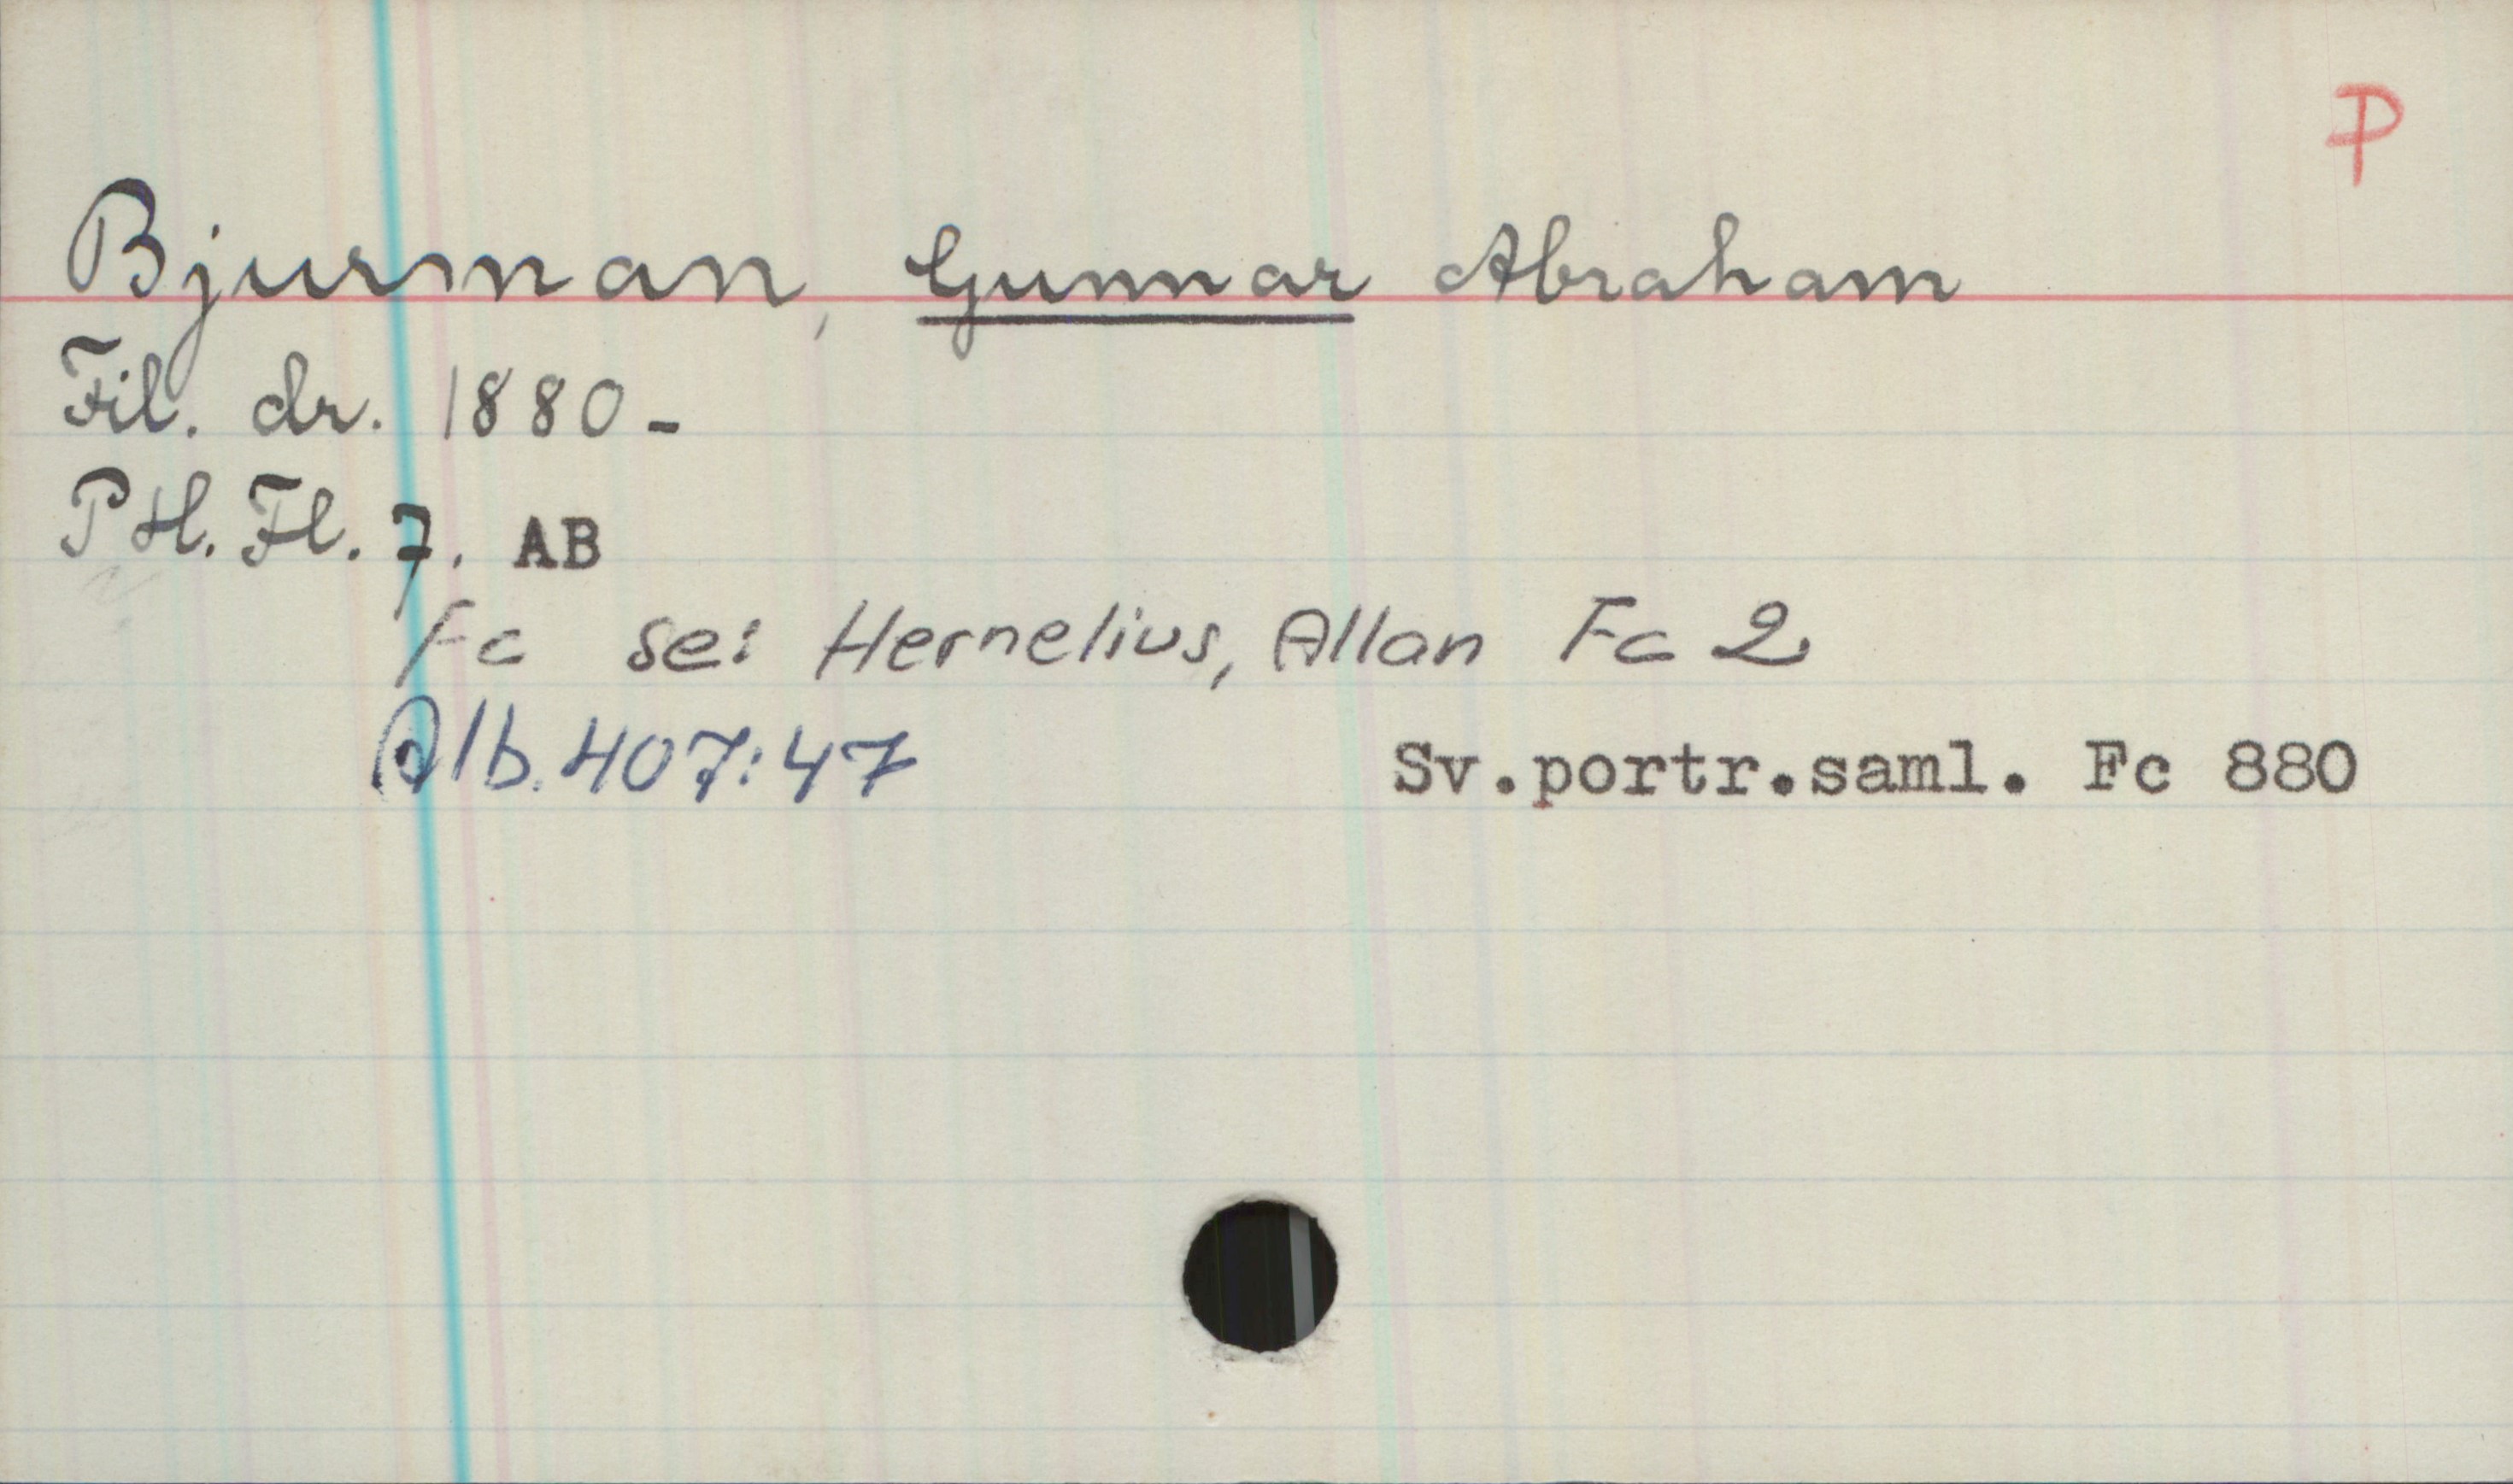 P
Bjurman, Gunnar Abraham
Fil. dr. 1880-
Ptl. Fl. 7. AB
Fc se: Hernelius, Allan Fc 2
Alb. 407:47 Sv.portr.saml. Fc 880